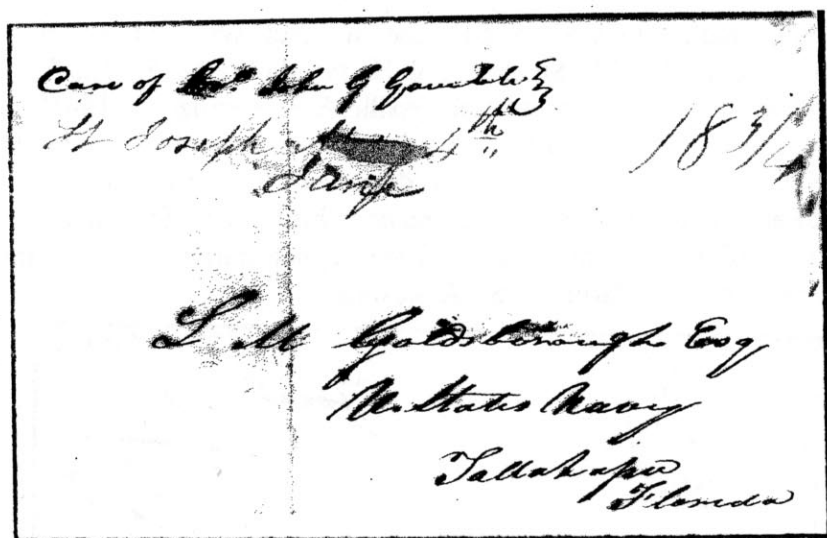 Care of Col. John G Gamble
St Joseph 4th
18 3/4
L M Goldsborough Esq
U. States Navy
Tallahassee
Florida